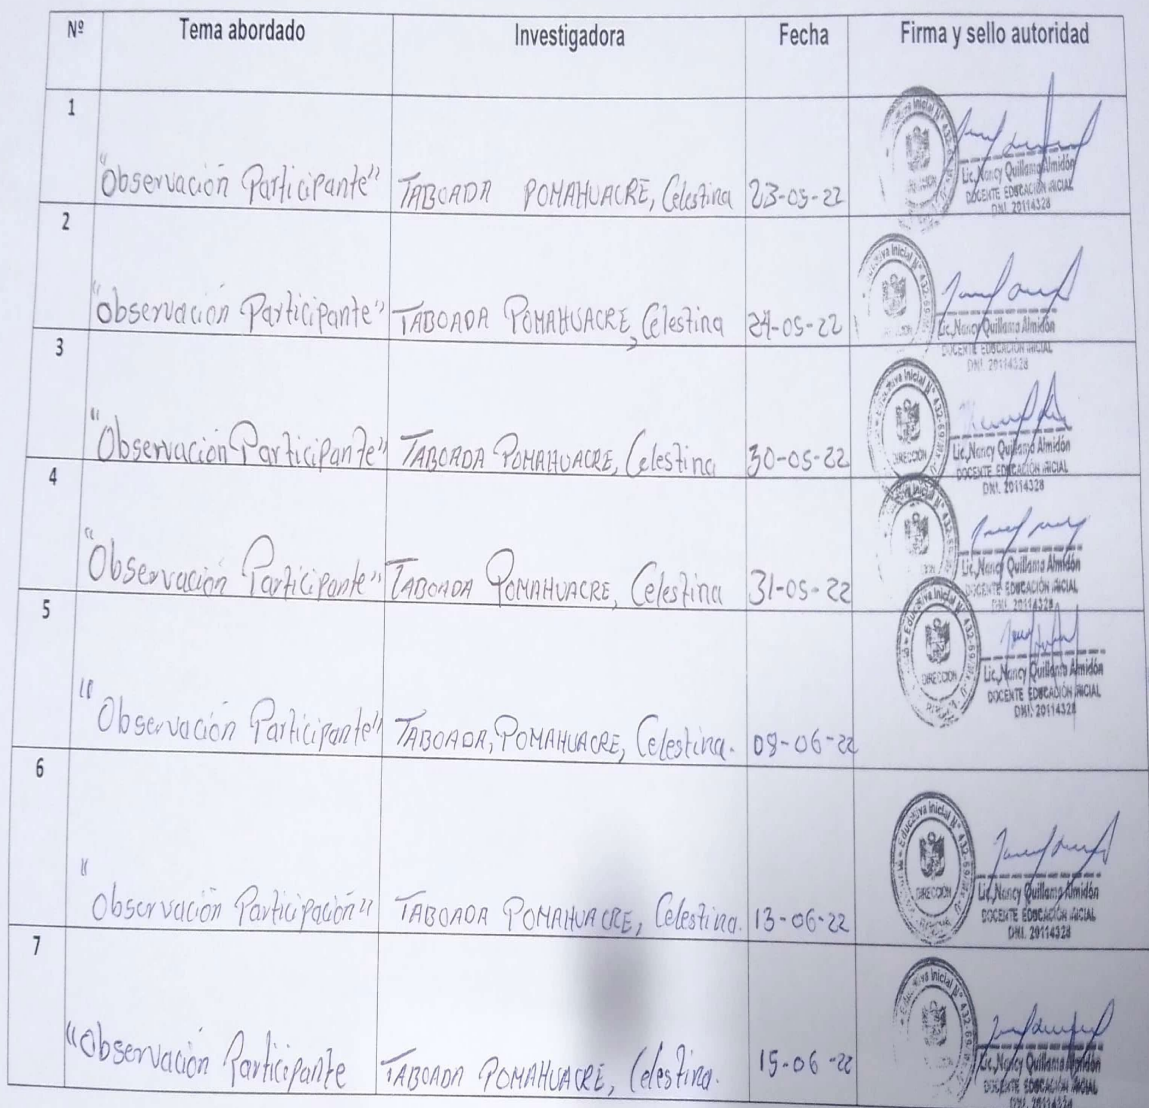 Nº Tema abordado Investigadora Fecha Firma y sello autoridad
1
"Observación Participante" TABOADA POMAHUACRE, Celestina 23-05-22
Lic. Nancy Quillama Almidón
DOCENTE EDUCACIÓN INICIAL
DNI. 20114328
2
"Observación Participante" TABOADA POMAHUACRE, Celestina 24-05-22
Lic. Nancy Quillama Almidón
DOCENTE EDUCACIÓN INICIAL
DNI. 20114328
3
"Observación Participante" TABOADA POMAHUACRE, Celestina 30-05-22
DIRECCIÓN
Lic. Nancy Quillama Almidón
DOCENTE EDUCACIÓN INICIAL
DNI. 20114328
4
"Observación Participante" TABOADA POMAHUACRE, Celestina 31-05-22
Lic. Nancy Quillama Almidón
DOCENTE EDUCACIÓN INICIAL
DNI. 20114328
5
"Observación Participante" TABOADA, POMAHUACRE, Celestina. 08-06-22
DIRECCIÓN
Lic. Nancy Quillama Almidón
DOCENTE EDUCACIÓN INICIAL
DNI. 20114328
6
"Observación Participación" TABOADA POMAHUACRE, Celestina. 13-06-22
Educativa Inicial Nº 432-69
DIRECCIÓN
Lic. Nancy Quillama Almidón
DOCENTE EDUCACIÓN INICIAL
DNI. 20114328
7
"Observación Participante TABOADA POMAHUACRE, Celestina. 15-06-22
Lic. Nancy Quillama Almidón
DOCENTE EDUCACIÓN INICIAL
DNI. 20114328